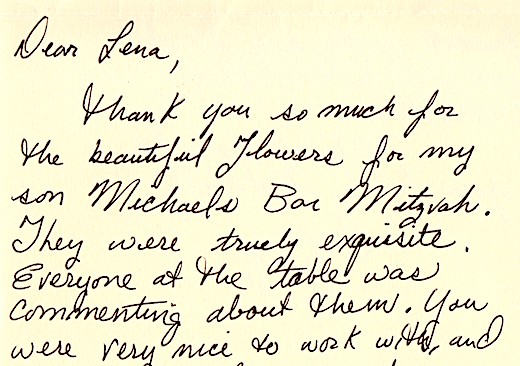 Dear Lena,
Thank you so much for
the beautiful Flowers for my
son Michaels Bar Mitzvah.
They were truely exquisite.
Everyone at the table was
commenting about them. You
were very nice to work with, and